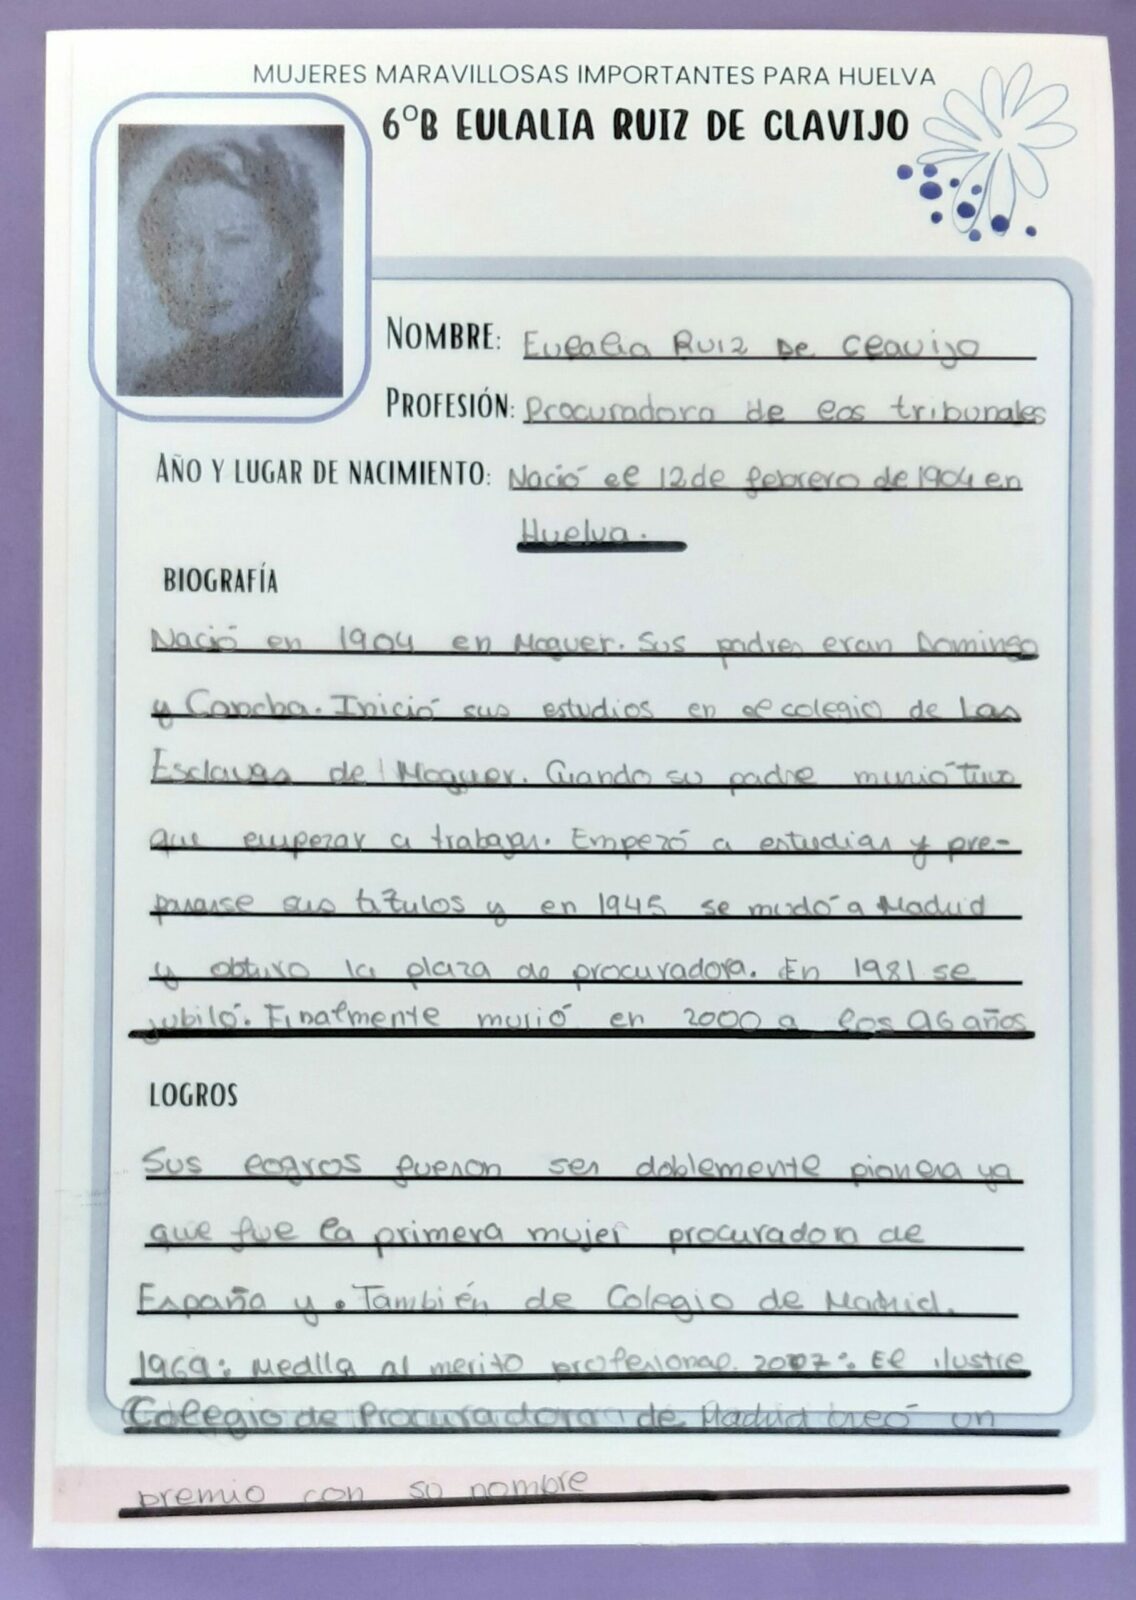 MUJERES MARAVILLOSAS IMPORTANTES PARA HUELVA
6ºB EULALIA RUIZ DE CLAVIJO
NOMBRE: Eulalia Ruiz De Clavijo
PROFESIÓN: Procuradora de los tribunales
AÑO Y LUGAR DE NACIMIENTO: Nació el 12 de febrero de 1904 en
Huelva.
BIOGRAFÍA
Nació en 1904 en Moguer. Sus padres eran Domingo
y Concha. Inició sus estudios en el colegio de Las
Esclavas de Moguer. Cuando su padre murió tuvo
que empezar a trabajar. Empezó a estudiar y pre-
pararse sus títulos y en 1945 se mudó a Madrid
y obtuvo la plaza de procuradora. En 1981 se
jubiló. Finalmente murió en 2000 a los 96 años
LOGROS
Sus logros fueron ser doblemente pionera ya
que fue la primera mujer procuradora de
España y . También de Colegio de Madrid.
1969: Medlla al merito profesional. 2007: El ilustre
Colegio de Procuradora de Madrid creó un
premio con su nombre